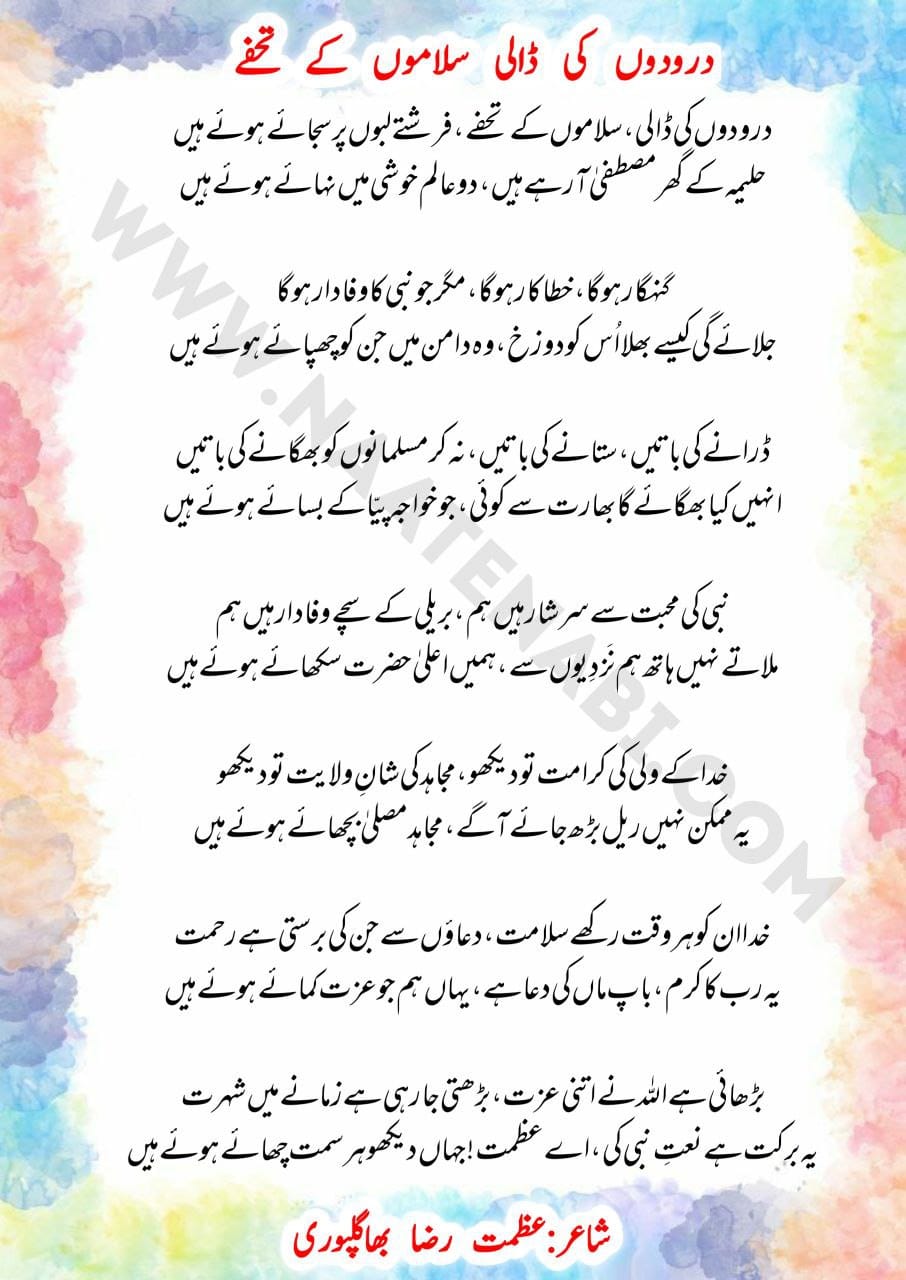 درودوں کی ڈالی سلاموں کے تحفے
درودوں کی ڈالی، سلاموں کے تحفے، فرشتے لبوں پر سجائے ہوئے ہیں
حلیمہ کے گھر مصطفیٰ آ رہے ہیں، دو عالم خوشی میں نہائے ہوئے ہیں
گنہگار ہوگا، خطاکار ہوگا، مگر جو نبی کا وفادار ہوگا
جلائے گی کیسے بھلا اُس کو دوزخ، وہ دامن میں جن کو چھپائے ہوئے ہیں
ڈرانے کی باتیں، ستانے کی باتیں، نہ کر مسلمانوں کو بھگانے کی باتیں
انہیں کیا بھگائے گا بھارت سے کوئی، جو خواجہ پیّا کے بسائے ہوئے ہیں
نبی کی محبت سے سرشار ہیں ہم، بریلی کے سچے وفادار ہیں ہم
ملاتے نہیں ہاتھ ہم نَزدِیوں سے، ہمیں اعلیٰ حضرت سکھائے ہوئے ہیں
خدا کے ولی کی کرامت تو دیکھو، مجاہد کی شانِ ولایت تو دیکھو
یہ ممکن نہیں ریل بڑھ جائے آگے، مجاہد مصلیٰ بچھائے ہوئے ہیں
خدا ان کو ہر وقت رکھے سلامت، دعاؤں سے جن کی برستی ہے رحمت
یہ رب کا کرم، باپ ماں کی دعا ہے، یہاں ہم جو عزت کمائے ہوئے ہیں
بڑھائی ہے اللہ نے اتنی عزت، بڑھتی جا رہی ہے زمانے میں شہرت
یہ برکت ہے نعتِ نبی کی، اے عظمت! جہاں دیکھو ہر سمت چھائے ہوئے ہیں
شاعر: عظمت رضا بھاگلپوری
WWW.NAATENABI.COM